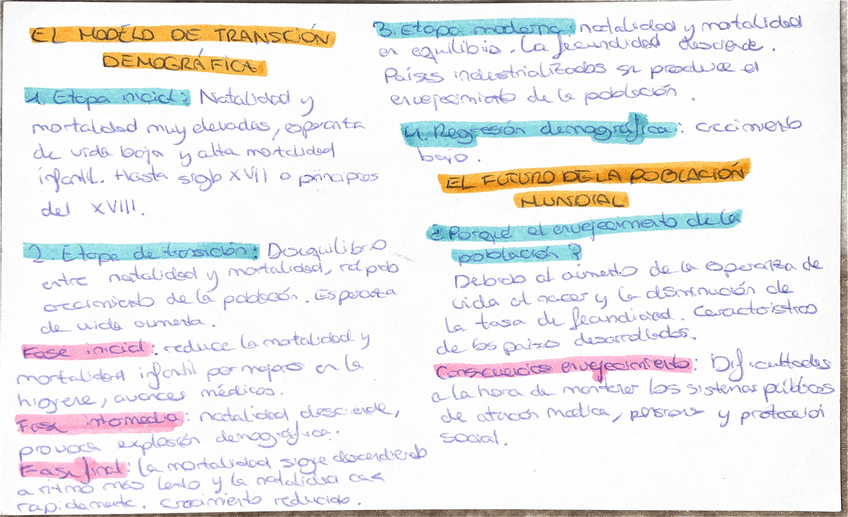 EL MODELO DE TRANSCIÓN
DEMOGRÁFICA
1. Etapa inicial: Natalidad y
mortalidad muy elevadas, esperanza
de vida baja y alta mortalidad
infantil. Hasta siglo XVII o principios
del XVIII.
2. Etapa de transición: Desquilibrio
entre natalidad y mortalidad, rápido
crecimiento de la población. Esperanza
de vida aumenta.
Fase inicial: reduce la mortalidad y
mortalidad infantil por mejoras en la
higiene, avances médicos.
Fase intermedia: natalidad desciende,
provoca explosión demográfica.
Fase final: la mortalidad sigue descendiendo
a ritmo más lento y la natalidad cae
rapidamente. Crecimiento reducido.
3. Etapa moderna: natalidad y mortalidad
en equilibrio. La fecundidad desciende.
Países industrializados se produce el
envejecimiento de la población.
4. Regresión demográfica: crecimiento
bajo.
EL FUTURO DE LA POBLACIÓN
MUNDIAL
¿Porqué el envejecimiento de la
población?
Debido al aumento de la esperanza de
vida al nacer y la disminución de
la tasa de fecundidad. Característico
de los países desarrollados.
Consecuencias envejecimiento: Dificultades
a la hora de mantener los sistemas públicos
de atención medica, pensiones y protección
social.